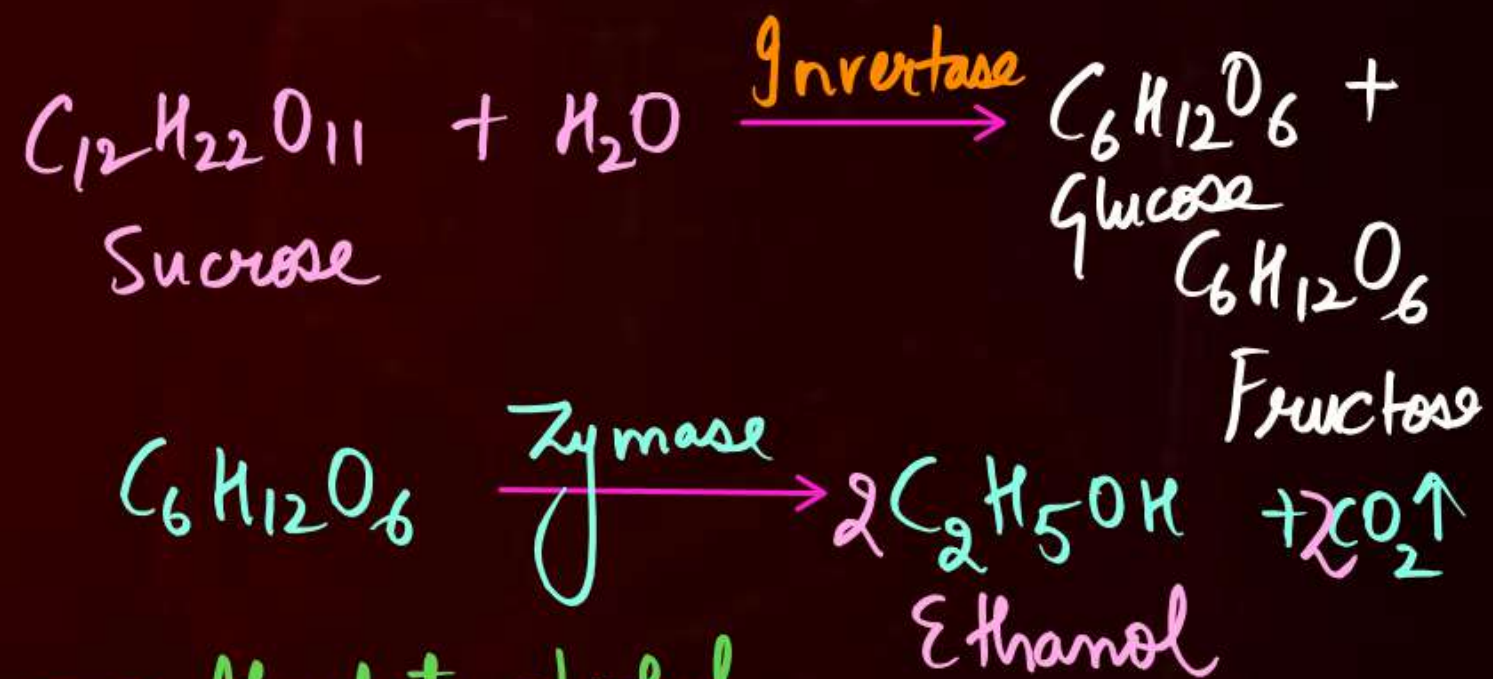 C₁₂H₂₂O₁₁ + H₂O Invertase → C₆H₁₂O₆ +
Sucrose Glucose
C₆H₁₂O₆
Fructose
C₆H₁₂O₆ Zymase → 2C₂H₅OH + 2CO₂↑
Ethanol